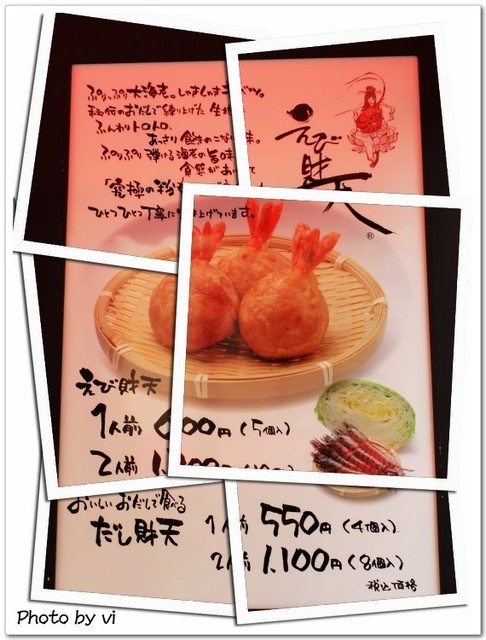 ぷりっぷり大海老。しゃきしゃきキャベツ。
秘伝のおだしで練り上げた 生地
ふんわりトロトロ、
あっさり 飽きのこない 味。
ぷりぷり 弾ける 海老の旨味
食感があいまって
「究極の
ひとつひとつ 丁寧に 上げています。
えび財天
®
えび財天
1人前 600円 (5個入)
2人前
おいしい おだしで食べる
だし財天
1人前 550円 (4個入)
2人前 1,100円 (8個入)
税込価格
Photo by vi